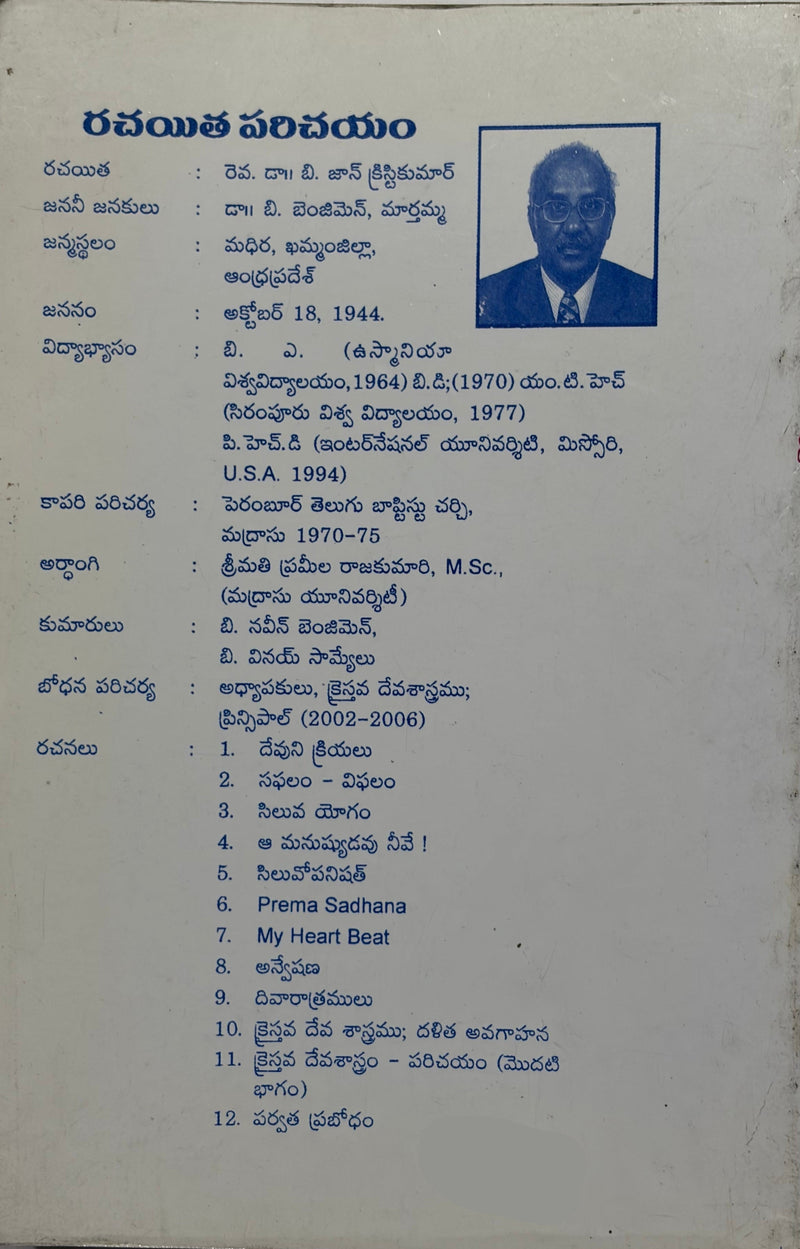 రచయిత పరిచయం
రచయిత : రెవ. డా॥ బి. జాన్ క్రిస్టికుమార్
జననీ జనకులు : డా॥ బి. బెంజిమెన్, మార్తమ్మ
జన్మస్థలం : మధిర, ఖమ్మంజిల్లా,
ఆంధ్రప్రదేశ్
జననం : అక్టోబర్ 18, 1944.
విద్యాభ్యాసం : బి. ఎ. (ఉస్మానియా
విశ్వవిద్యాలయం,1964) బి.డి;(1970) యం.టి.హెచ్
(సిరంపూరు విశ్వ విద్యాలయం, 1977)
పి.హెచ్.డి (ఇంటర్‌నేషనల్ యూనివర్శిటి, మిస్సోరి,
U.S.A. 1994)
కాపరి పరిచర్య : పెరంబూర్ తెలుగు బాప్టిస్టు చర్చి,
మద్రాసు 1970-75
అర్ధాంగి : శ్రీమతి ప్రమీల రాజకుమారి, M.Sc.,
(మద్రాసు యూనివర్శిటీ)
కుమారులు : బి. నవీన్ బెంజిమెన్,
బి. వినయ్ సామ్యేలు
బోధన పరిచర్య : అధ్యాపకులు, క్రైస్తవ దేవశాస్త్రము;
ప్రిన్సిపాల్ (2002-2006)
రచనలు : 1. దేవుని క్రియలు
2. సఫలం - విఫలం
3. సిలువ యోగం
4. ఆ మనుష్యుడవు నీవే !
5. సిలువోపనిషత్
6. Prema Sadhana
7. My Heart Beat
8. అన్వేషణ
9. దివారాత్రములు
10. క్రైస్తవ దేవ శాస్త్రము; దళిత అవగాహన
11. క్రైస్తవ దేవశాస్త్రం - పరిచయం (మొదటి
భాగం)
12. పర్వత ప్రబోధం